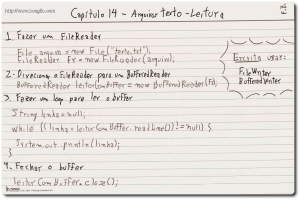 Capítulo 14 - Arquivos texto - Leitura
1. Fazer um FileReader
File arquivo = new File("texto.txt");
FileReader fr = new FileReader(arquivo);
Escrita usar:
FileWriter
BufferedWriter
2. Direciono o FileReader para um BufferedReader
BufferedReader leitorComBuffer = new BufferedReader(fr);
3. Fazer um loop para ler o buffer
String linha = null;
while ((linha = leitorComBuffer.readLine()) != null) {
System.out.println(linha);
}
4. Fechar o buffer
leitorComBuffer.close();